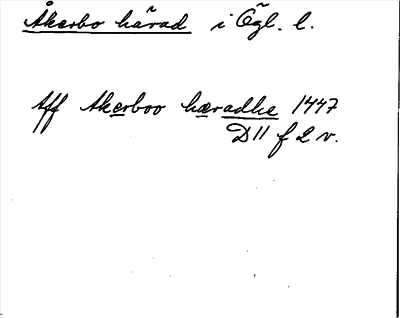 Åkerbo härad i Ögl. l.
Aff Akerboo hæradhe 1447
D 11 f 2 v.